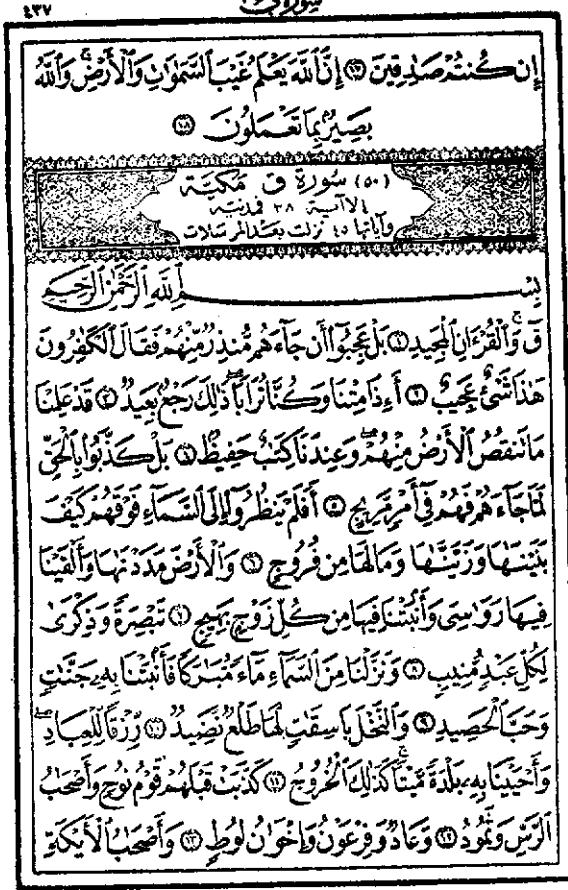 ٤٣٧ سورة ق
إِن كُنتُمْ صَٰدِقِينَ ۝١٧ إِنَّ ٱللَّهَ يَعْلَمُ غَيْبَ ٱلسَّمَٰوَٰتِ وَٱلْأَرْضِ ۚ وَٱللَّهُ
بَصِيرٌۢ بِمَا تَعْمَلُونَ ۝١٨
(٥٠) سورة ق مكية
إلا آية ٣٨ فمدنية
وآياتها ٤٥ نزلت بعد المرسلات
بِسْمِ ٱللَّهِ ٱلرَّحْمَٰنِ ٱلرَّحِيمِ
قٓ ۚ وَٱلْقُرْءَانِ ٱلْمَجِيدِ ۝١ بَلْ عَجِبُوٓا۟ أَن جَآءَهُم مُّنذِرٌ مِّنْهُمْ فَقَالَ ٱلْكَٰفِرُونَ
هَٰذَا شَىْءٌ عَجِيبٌ ۝٢ أَءِذَا مِتْنَا وَكُنَّا تُرَابًا ۖ ذَٰلِكَ رَجْعٌۢ بَعِيدٌ ۝٣ قَدْ عَلِمْنَا
مَا تَنقُصُ ٱلْأَرْضُ مِنْهُمْ ۖ وَعِندَنَا كِتَٰبٌ حَفِيظٌۢ ۝٤ بَلْ كَذَّبُوا۟ بِٱلْحَقِّ
لَمَّا جَآءَهُمْ فَهُمْ فِىٓ أَمْرٍ مَّرِيجٍ ۝٥ أَفَلَمْ يَنظُرُوٓا۟ إِلَى ٱلسَّمَآءِ فَوْقَهُمْ كَيْفَ
بَنَيْنَٰهَا وَزَيَّنَّٰهَا وَمَا لَهَا مِن فُرُوجٍ ۝٦ وَٱلْأَرْضَ مَدَدْنَٰهَا وَأَلْقَيْنَا
فِيهَا رَوَٰسِىَ وَأَنۢبَتْنَا فِيهَا مِن كُلِّ زَوْجٍۭ بَهِيجٍ ۝٧ تَبْصِرَةً وَذِكْرَىٰ
لِكُلِّ عَبْدٍ مُّنِيبٍ ۝٨ وَنَزَّلْنَا مِنَ ٱلسَّمَآءِ مَآءً مُّبَٰرَكًا فَأَنۢبَتْنَا بِهِۦ جَنَّٰتٍ
وَحَبَّ ٱلْحَصِيدِ ۝٩ وَٱلنَّخْلَ بَاسِقَٰتٍ لَّهَا طَلْعٌ نَّضِيدٌ ۝١٠ رِّزْقًا لِّلْعِبَادِ ۖ
وَأَحْيَيْنَا بِهِۦ بَلْدَةً مَّيْتًا ۚ كَذَٰلِكَ ٱلْخُرُوجُ ۝١١ كَذَّبَتْ قَبْلَهُمْ قَوْمُ نُوحٍ وَأَصْحَٰبُ
ٱلرَّسِّ وَثَمُودُ ۝١٢ وَعَادٌ وَفِرْعَوْنُ وَإِخْوَٰنُ لُوطٍ ۝١٣ وَأَصْحَٰبُ ٱلْأَيْكَةِ